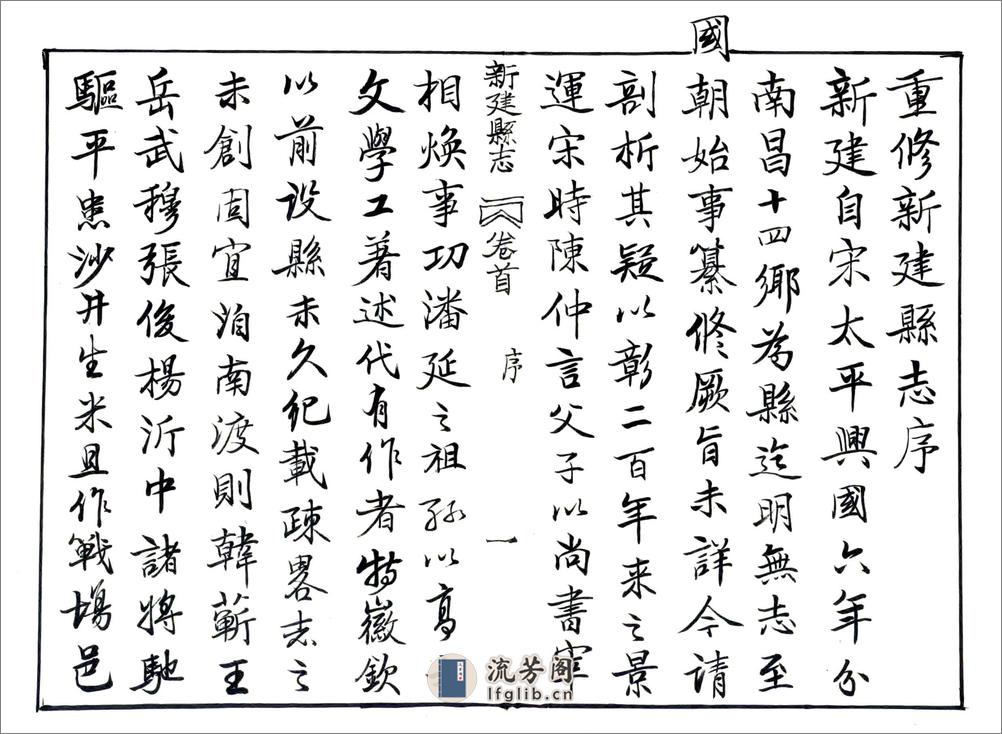 重修新建縣志序
新建自宋太平興國六年分
南昌十四鄉為縣迄明無志至
國朝始事纂修厥旨未詳今請
剖析其疑以彰二百年来之景
運宋時陳仲言父子以尚書宰
新建縣志 卷首 序 一
相煥事功潘延之祖孫以高
文學工著述代有作者特徽欽
以前設縣未久紀載疎畧志之
未創固宜洎南渡則韓蘄王
岳武穆張俊楊沂中諸將馳
驅平患沙井生米且作戰場邑
流芳阁
lfglib.cn